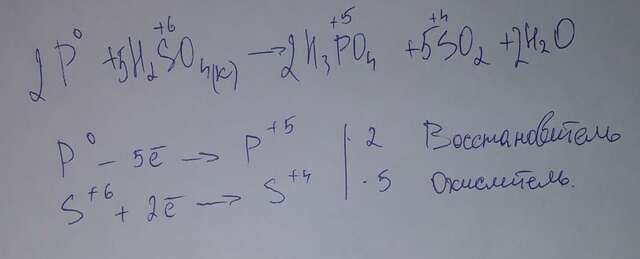 2P⁰ + 5H₂S⁺⁶O₄(к) → 2H₃P⁺⁵O₄ + 5S⁺⁴O₂ + 2H₂O
P⁰ - 5ē → P⁺⁵ | · 2 Восстановитель
S⁺⁶ + 2ē → S⁺⁴ | · 5 Окислитель.